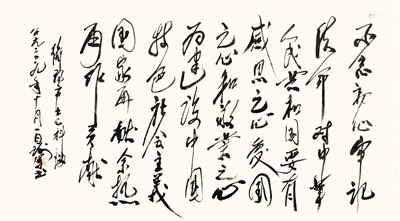 不忘初心牢记
使命对中华
人民共和国要有
感恩之心爱国
之心和敬业之心
为建设中国
特色社会主义
国家再献余热
再作贡献
二〇一九年十月一日